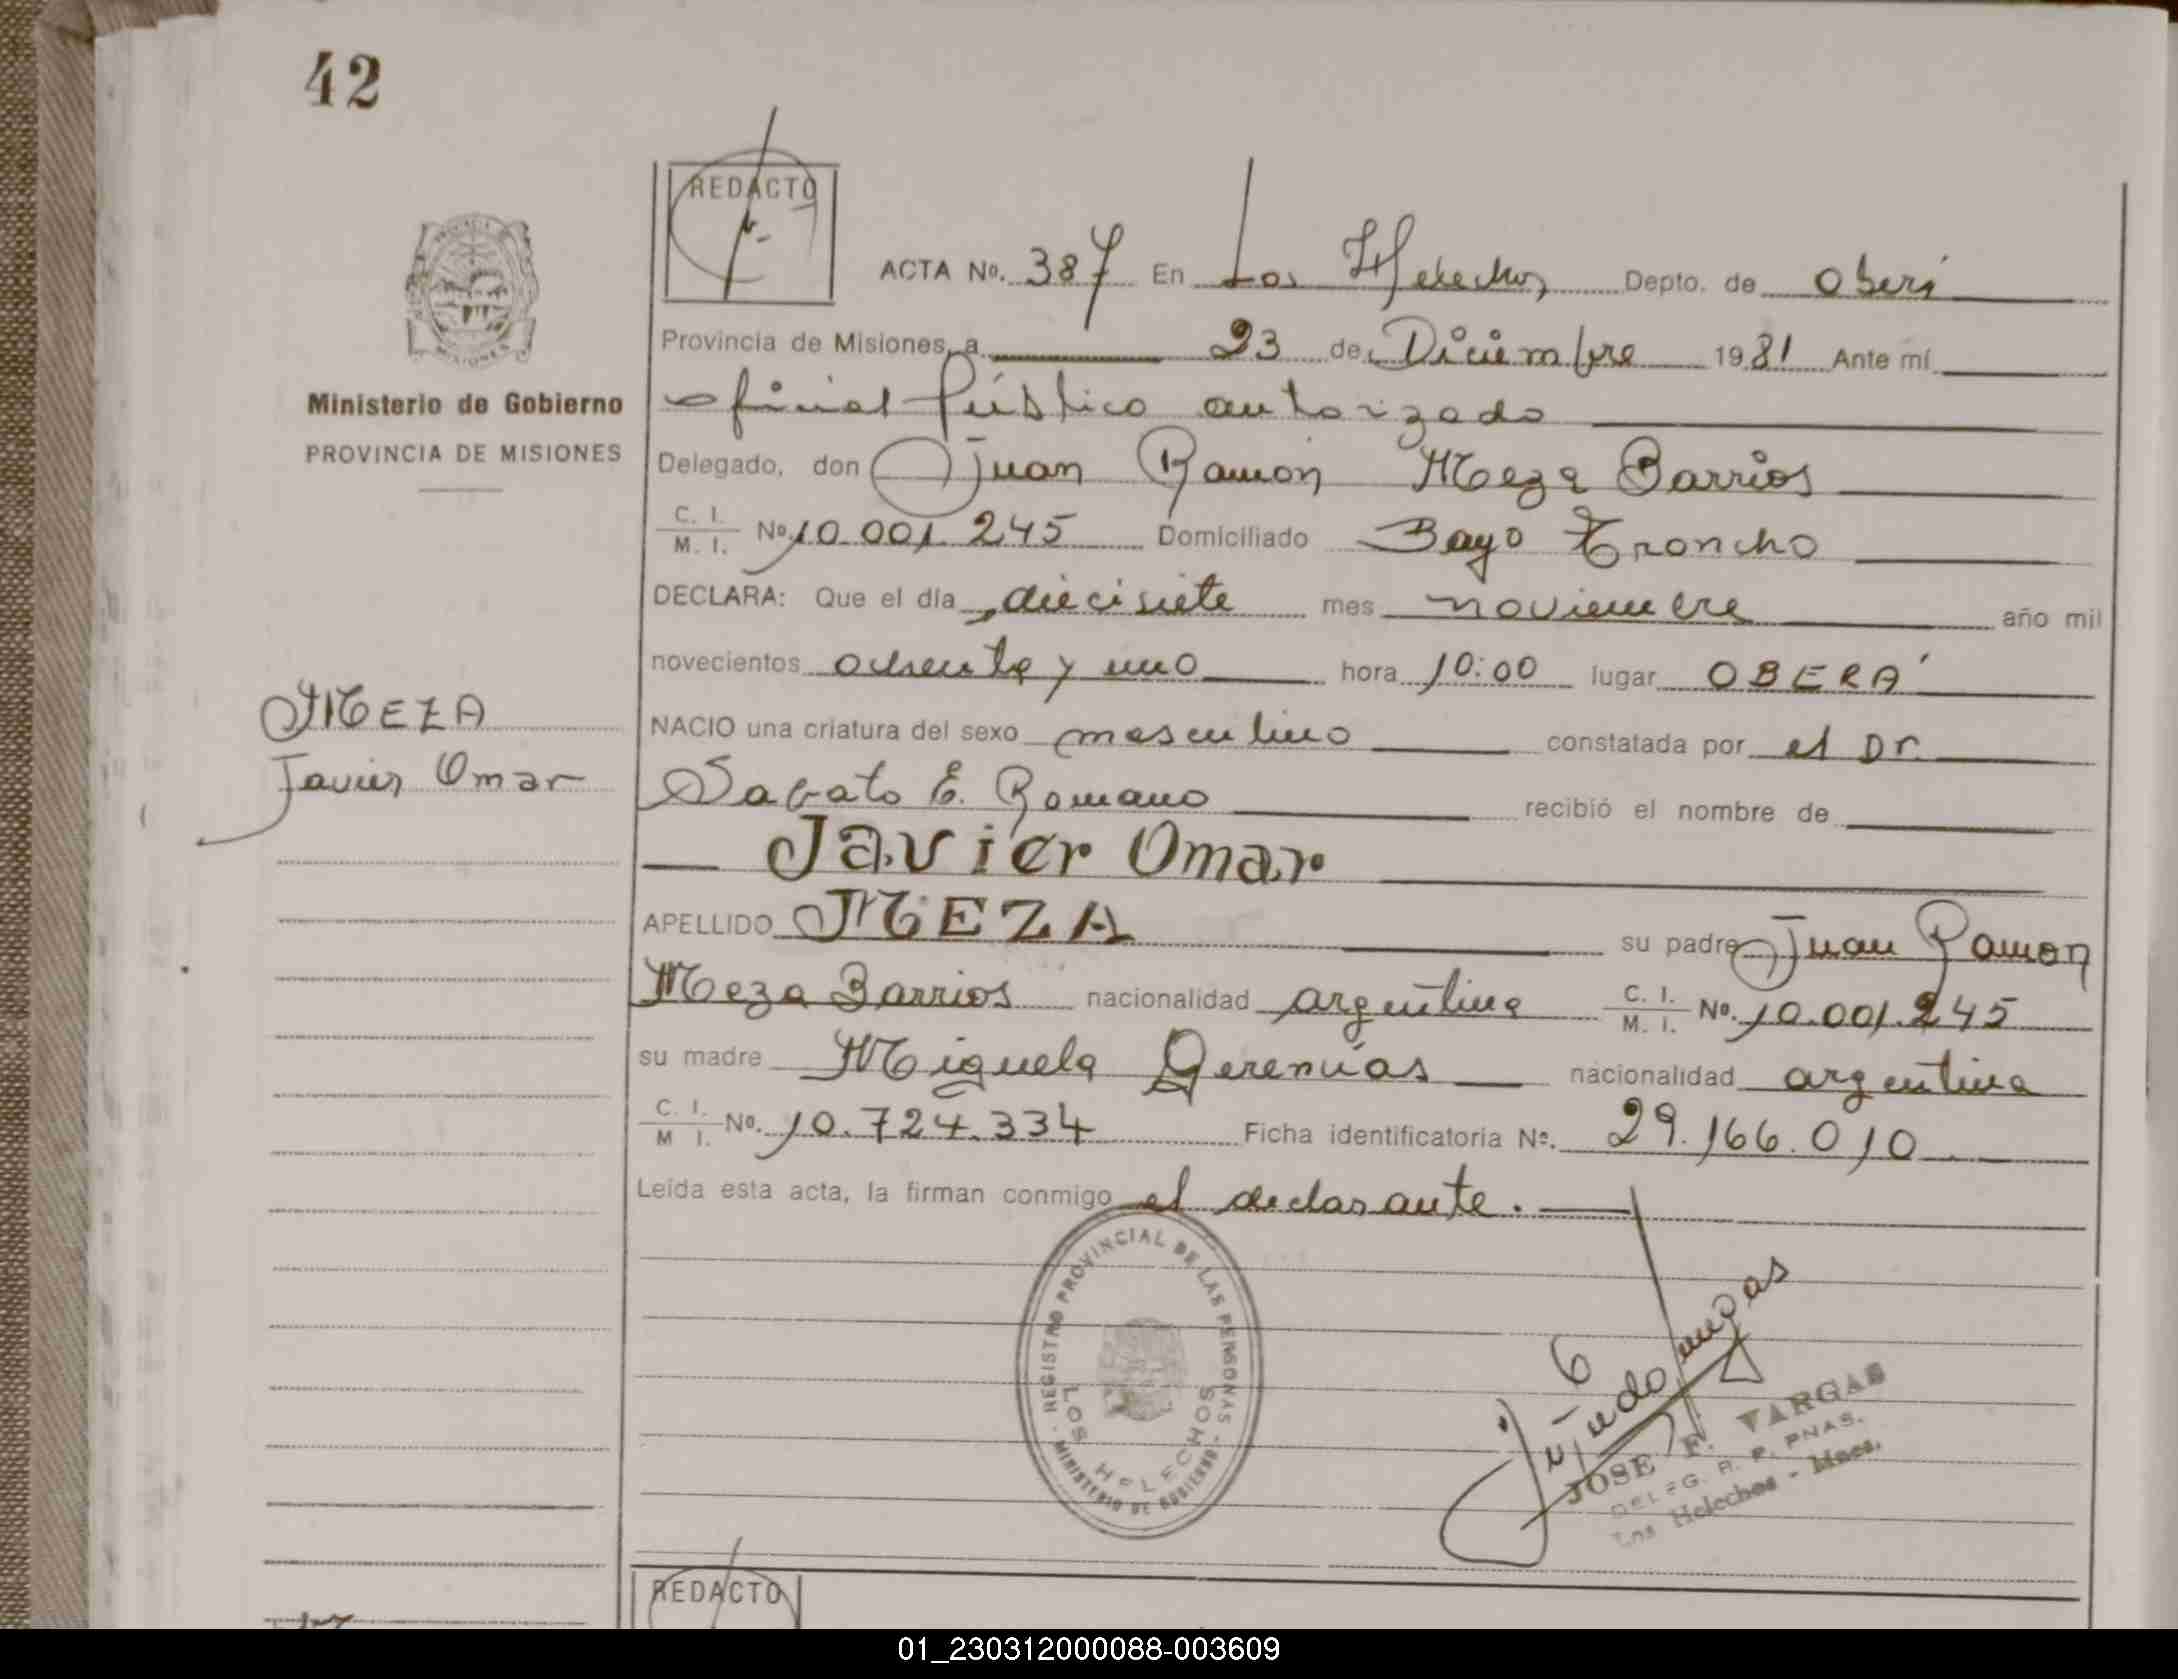 42
REDACTO
ACTA No. 387 En Los Helechos Depto. de Oberá
Provincia de Misiones, a 23 de Diciembre 1981 Ante mí
Ministerio de Gobierno
oficial Público autorizado
PROVINCIA DE MISIONES
Delegado, don Juan Ramon Meza Barrios
C. I. / M. I. No. 10.001.245 Domiciliado Bayo Troncho
DECLARA: Que el día diecisiete mes noviembre año mil
novecientos ochenta y uno hora 10:00 lugar OBERÁ
MEZA
NACIO una criatura del sexo masculino constatada por el Dr.
Javier Omar
Sabato E. Romano recibió el nombre de
Javier Omar
APELLIDO MEZA su padre Juan Ramon
Meza Barrios nacionalidad argentina C. I. / M. I. No. 10.001.245
su madre Miguela Geremías nacionalidad argentina
C. I. / M I. No. 10.724.334 Ficha identificatoria No. 29.166.010
Leída esta acta, la firman conmigo el declarante.
REGISTRO PROVINCIAL DE LAS PERSONAS
LOS HELECHOS
MINISTERIO DE GOBIERNO
JOSE F. VARGAS
DELEG. R. P. PNAS.
Los Helechos - Mnes.
REDACTO
01_230312000088-003609